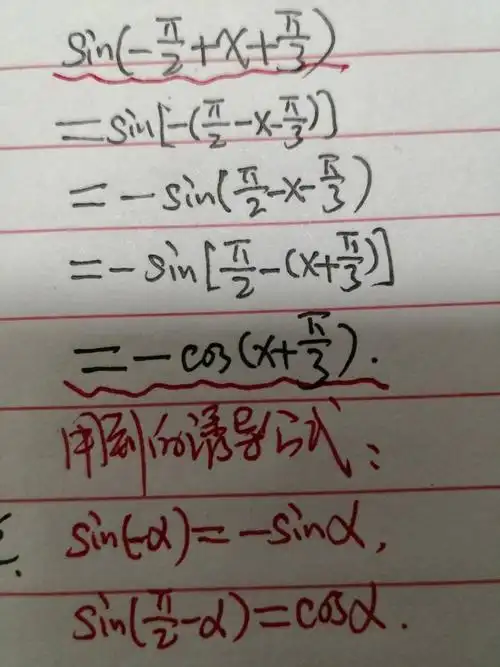 sin(-π/2+x+π/3)
=sin[-(π/2-x-π/3)]
=-sin(π/2-x-π/3)
=-sin[π/2-(x+π/3)]
=-cos(x+π/3).
用到的诱导公式:
sin(-α)=-sinα,
sin(π/2-α)=cosα.